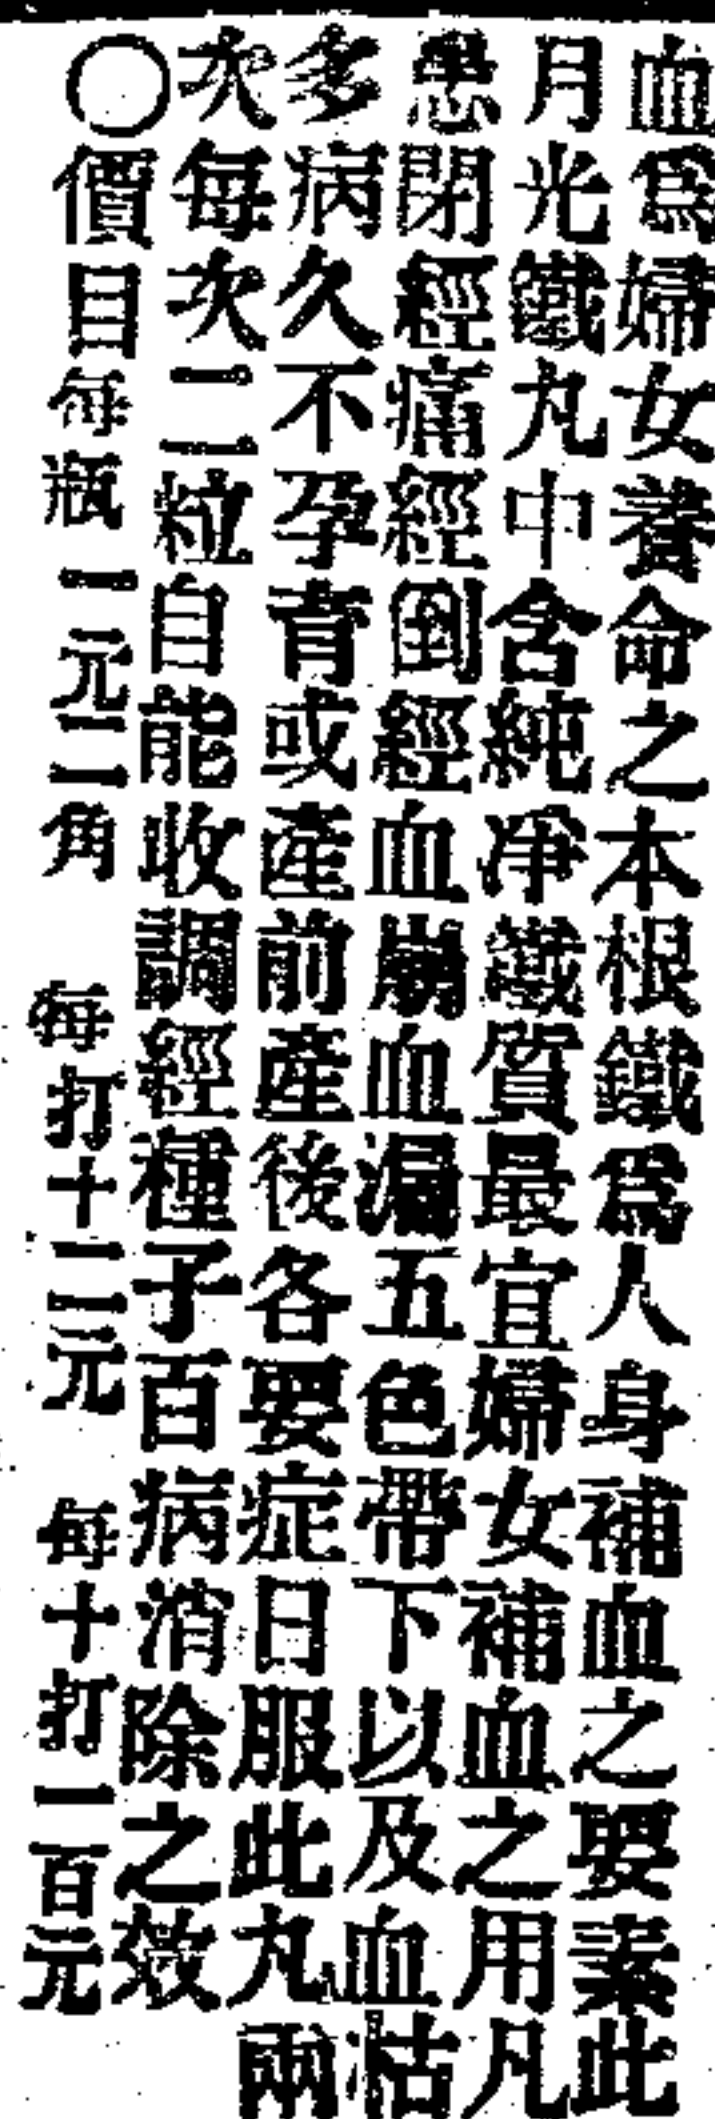 血爲婦女養命之本根鐵爲人身補血之要素此
月光鐵丸中含純凈鐵質最宜婦女補血之用凡
患閉經痛經倒經血崩血漏五色帶下以及血枯
多病久不孕育或產前產後各要症日服此丸兩
次每次二粒自能收調經種子百病消除之效
〇價目每瓶一元二角 每打十二元 每十打一百元